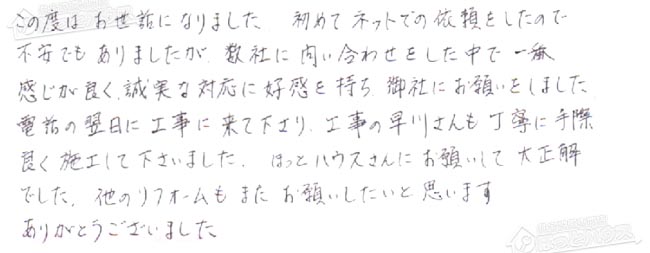 この度は お世話になりました、 初めて ネットでの依頼をしたので
不安でも ありましたが、数社に 問い合わせをした中で 一番
感じが良く、誠実な対応に好感を持ち 御社にお願いをしました、
電話の翌日に工事に来て下さり、工事の早川さんも丁寧に手際
良く施工して下さいました、 ほっとハウスさんにお願いして 大正解
でした、他のリフォームも また お願いしたいと思います
ありがとうございました、